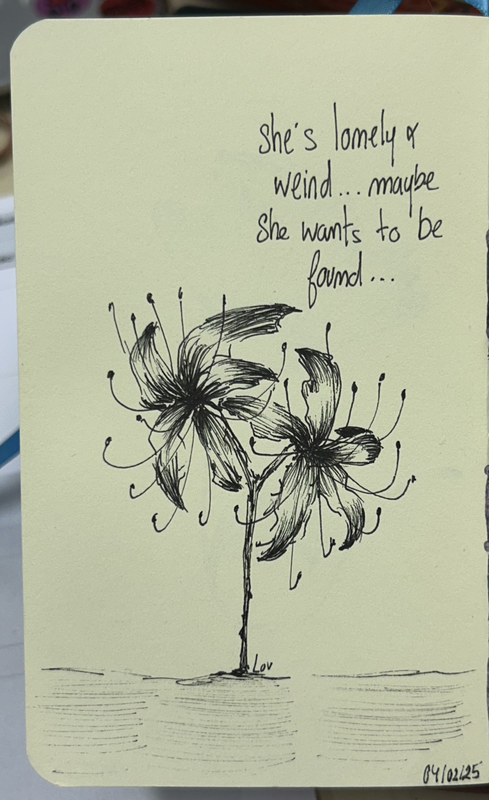 she's lonely &
weird... maybe
she wants to be
found...
Lov
04/02/25